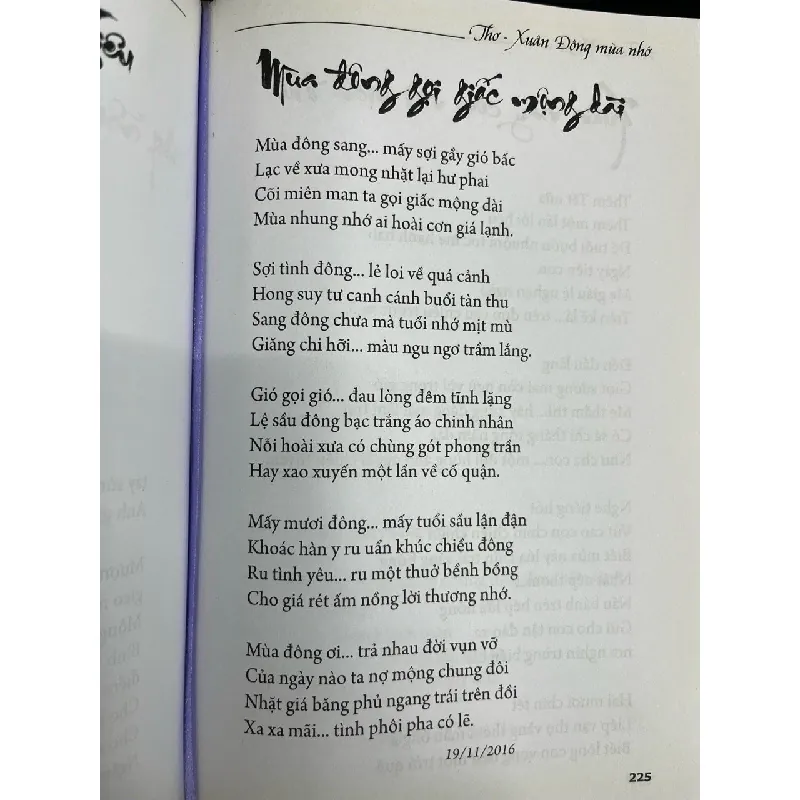 Thơ - Xuân Đông mùa nhớ
Mùa đông gọi giấc mộng dài
Mùa đông sang... mấy sợi gầy gió bấc
Lạc về xưa mong nhặt lại hư phai
Cõi miên man ta gọi giấc mộng dài
Mùa nhung nhớ ai hoài cơn giá lạnh.
Sợi tình đông... lẻ loi về quá cảnh
Hong suy tư canh cánh buổi tàn thu
Sang đông chưa mà tuổi nhớ mịt mù
Giăng chi hỡi... màu ngu ngơ trầm lắng.
Gió gọi gió... đau lòng đêm tĩnh lặng
Lệ sầu đông bạc trắng áo chinh nhân
Nỗi hoài xưa có chùng gót phong trần
Hay xao xuyến một lần về cố quận.
Mấy mươi đông... mấy tuổi sầu lận đận
Khoác hàn y ru uẩn khúc chiều đông
Ru tình yêu... ru một thuở bềnh bồng
Cho giá rét ấm nồng lời thương nhớ.
Mùa đông ơi... trả nhau đời vụn vỡ
Của ngày nào ta nợ mộng chung đôi
Nhặt giá băng phủ ngang trái trên đồi
Xa xa mãi... tình phôi pha có lẽ.
19/11/2016
225